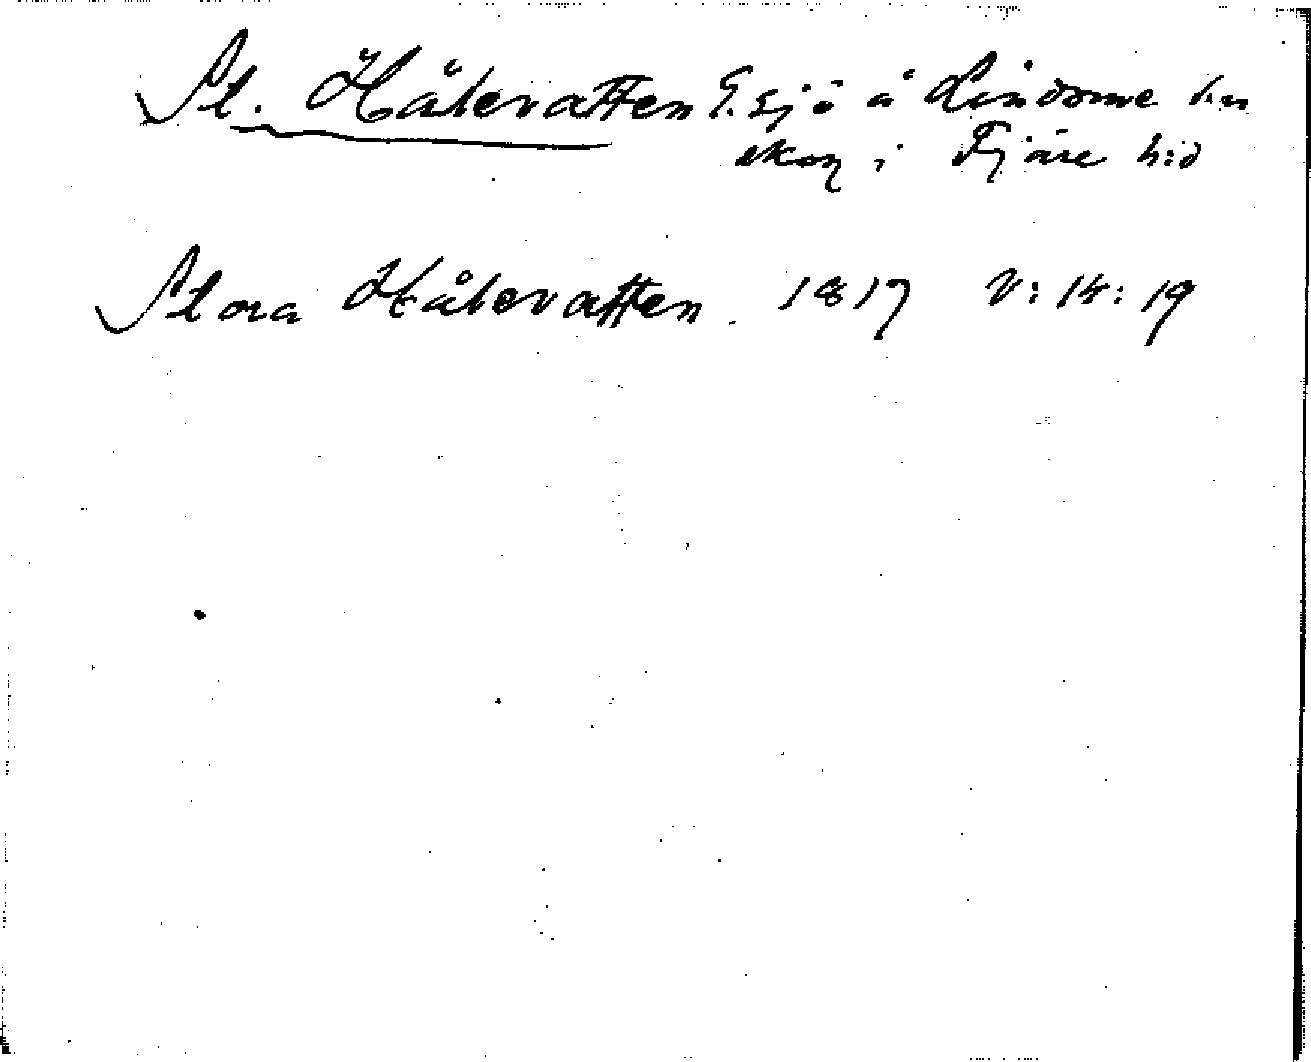 St. Hålevatten G. sjö å Lindome sn
skog i Fjäre h:d
Stora Hålevatten. 1817 V: 14: 19